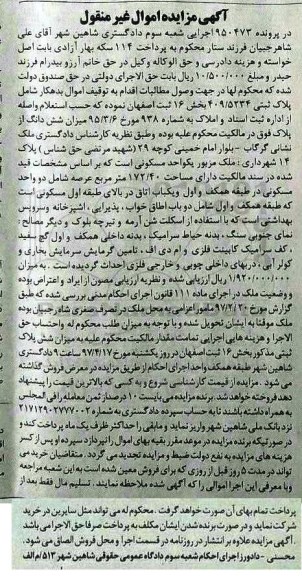 آگهی مزایده اموال غیر منقول
در پرونده ۹۵۰۴۷۳ اجرایی شعبه سوم دادگستری شاهین شهر آقای علی
شاهرجبیان فرزند ستار محکوم به پرداخت ۱۱۴ سکه بهار آزادی بابت اصل
خواسته و هزینه دادرسی و حق الوکاله وکیل در حق خانم آرزو بیدرام فرزند
حیدر و مبلغ ۱۰/۵۰۰/۰۰۰ ریال بابت حق الاجرای دولتی در حق صندوق دولت
شده که محکوم لها در جهت وصول مطالبات اقدام به توقیف اموال بدهکار شامل
پلاک ثبتی ۴۰۹/۵۲۳۴ بخش ۱۶ ثبت اصفهان نموده که حسب استعلام واصله
از اداره ثبت اسناد و املاک به شماره ۹۳۸ مورخ ۹۵/۳/۶ میزان شش دانگ از
پلاک فوق در مالکیت محکوم علیه بوده و طبق نظریه کارشناس دادگستری ملک
نشانی گرگاب – بلوار امام خمینی کوچه ۲۹ (شهید مرتضی حق شناس) پلاک
۱۴ شهرداری : ملک مزبور یکواحد مسکونی است که بر اساس مشخصات قید
شده در سند مالکیت دارای مساحت ۱۷۲/۴۰ متر مربع عرصه شامل دو واحد
مسکونی در طبقه همکف و اول ویکباب اتاق در بالای طبقه اول مسکونی است
که طبقه همکف و اول شامل دو باب اطاق خواب ، پذیرایی ، آشپزخانه و سرویس
بهداشتی است که با استفاده از اسکلت شن آرمه و تیرچه بلوک و دیگر مصالح :
نمای جنوبی سنگ ، بدنه حیاط سرامیک ، بدنه داخلی همکف و اول گچ سفید
، کف سرامیک کابینت فلزی و ام دی اف ، تامین گرمایش سرمایش بخاری و
کولر آبی ، دربهای داخلی چوبی و خارجی فلزی احداث گردیده است . به میزان
۱/۹۲۰/۰۰۰/۰۰۰ ریال ارزیابی شده و نظریه ارزیابی مصون از ایراد و اعتراض بوده
و وضعیت ملک در اجرای ماده ۱۱۱ قانون اجرای احکام مدنی بررسی شده که طبق
گزارش مورخ ۹۷/۲/۲۰ مامور اعزامی به محل ملک در تصرف صغری شاه رجبیان بوده
ملک موقتا به ایشان تحویل شده و با توجه به میزان طلب محکوم له واحتساب حق
الاجرا و هزینه هایی اجرایی تمامت مقدار مالکیت محکوم علیه به میزان شش پلاک
ثبتی مذکور بخش ۱۶ ثبت اصفهان در روز یکشنبه مورخ ۹۷/۴/۱۷ ساعت ۹ دادگستری
شاهین شهر طبقه همکف واحد اجرای احکام از طریق مزایده در معرض فروش گذاشته
می شود . مزایده از قیمت کارشناسی شروع و به کسی که بالاترین قیمت را پیشنهاد
دهد فروخته خواهد شد. برنده مزایده می بایست ۱۰ درصد از ثمن معامله را فی المجلس
به همراه داشته باشد تا به حساب سپرده دادگستری به شماره ۲۱۷۱۲۹۰۲۷۷۷۰۰۲
نزد بانک ملی شاهین شهر واریز نماید و مابقی را حداکثر ظرف یک ماه پرداخت کند و
در صورتیکه برنده مزایده در موعد مقرر بقیه بهای اموال را نپردازد سپرده او پس از کسر
هزینه های مزایده به نفع دولت ضبط و مزایده تجدید می گردد . متقاضیان خرید می
توانند در مدت ۵ روز قبل از روزی که برای فروش معین شده است به این شعبه مراجعه
و با معرفی این اجرا اموالی را که آگهی شده ملاحظه نمایند . تسلیم مال فقط بعد از
پرداخت تمام بهای آن صورت خواهد گرفت . محکوم له می تواند مثل سایرین در خرید
شرکت نماید و در صورت برنده شدن ایشان مکلف به پرداخت صرفا حق الاجرا می باشد
آگهی مزایده علاوه بر انتشار در روزنامه در قسمت اجرا و محل فروش الصاق می شود.
محسنی – دادورز اجرای احکام شعبه سوم دادگاه عمومی حقوقی شاهین شهر ۵۱۳/م الف